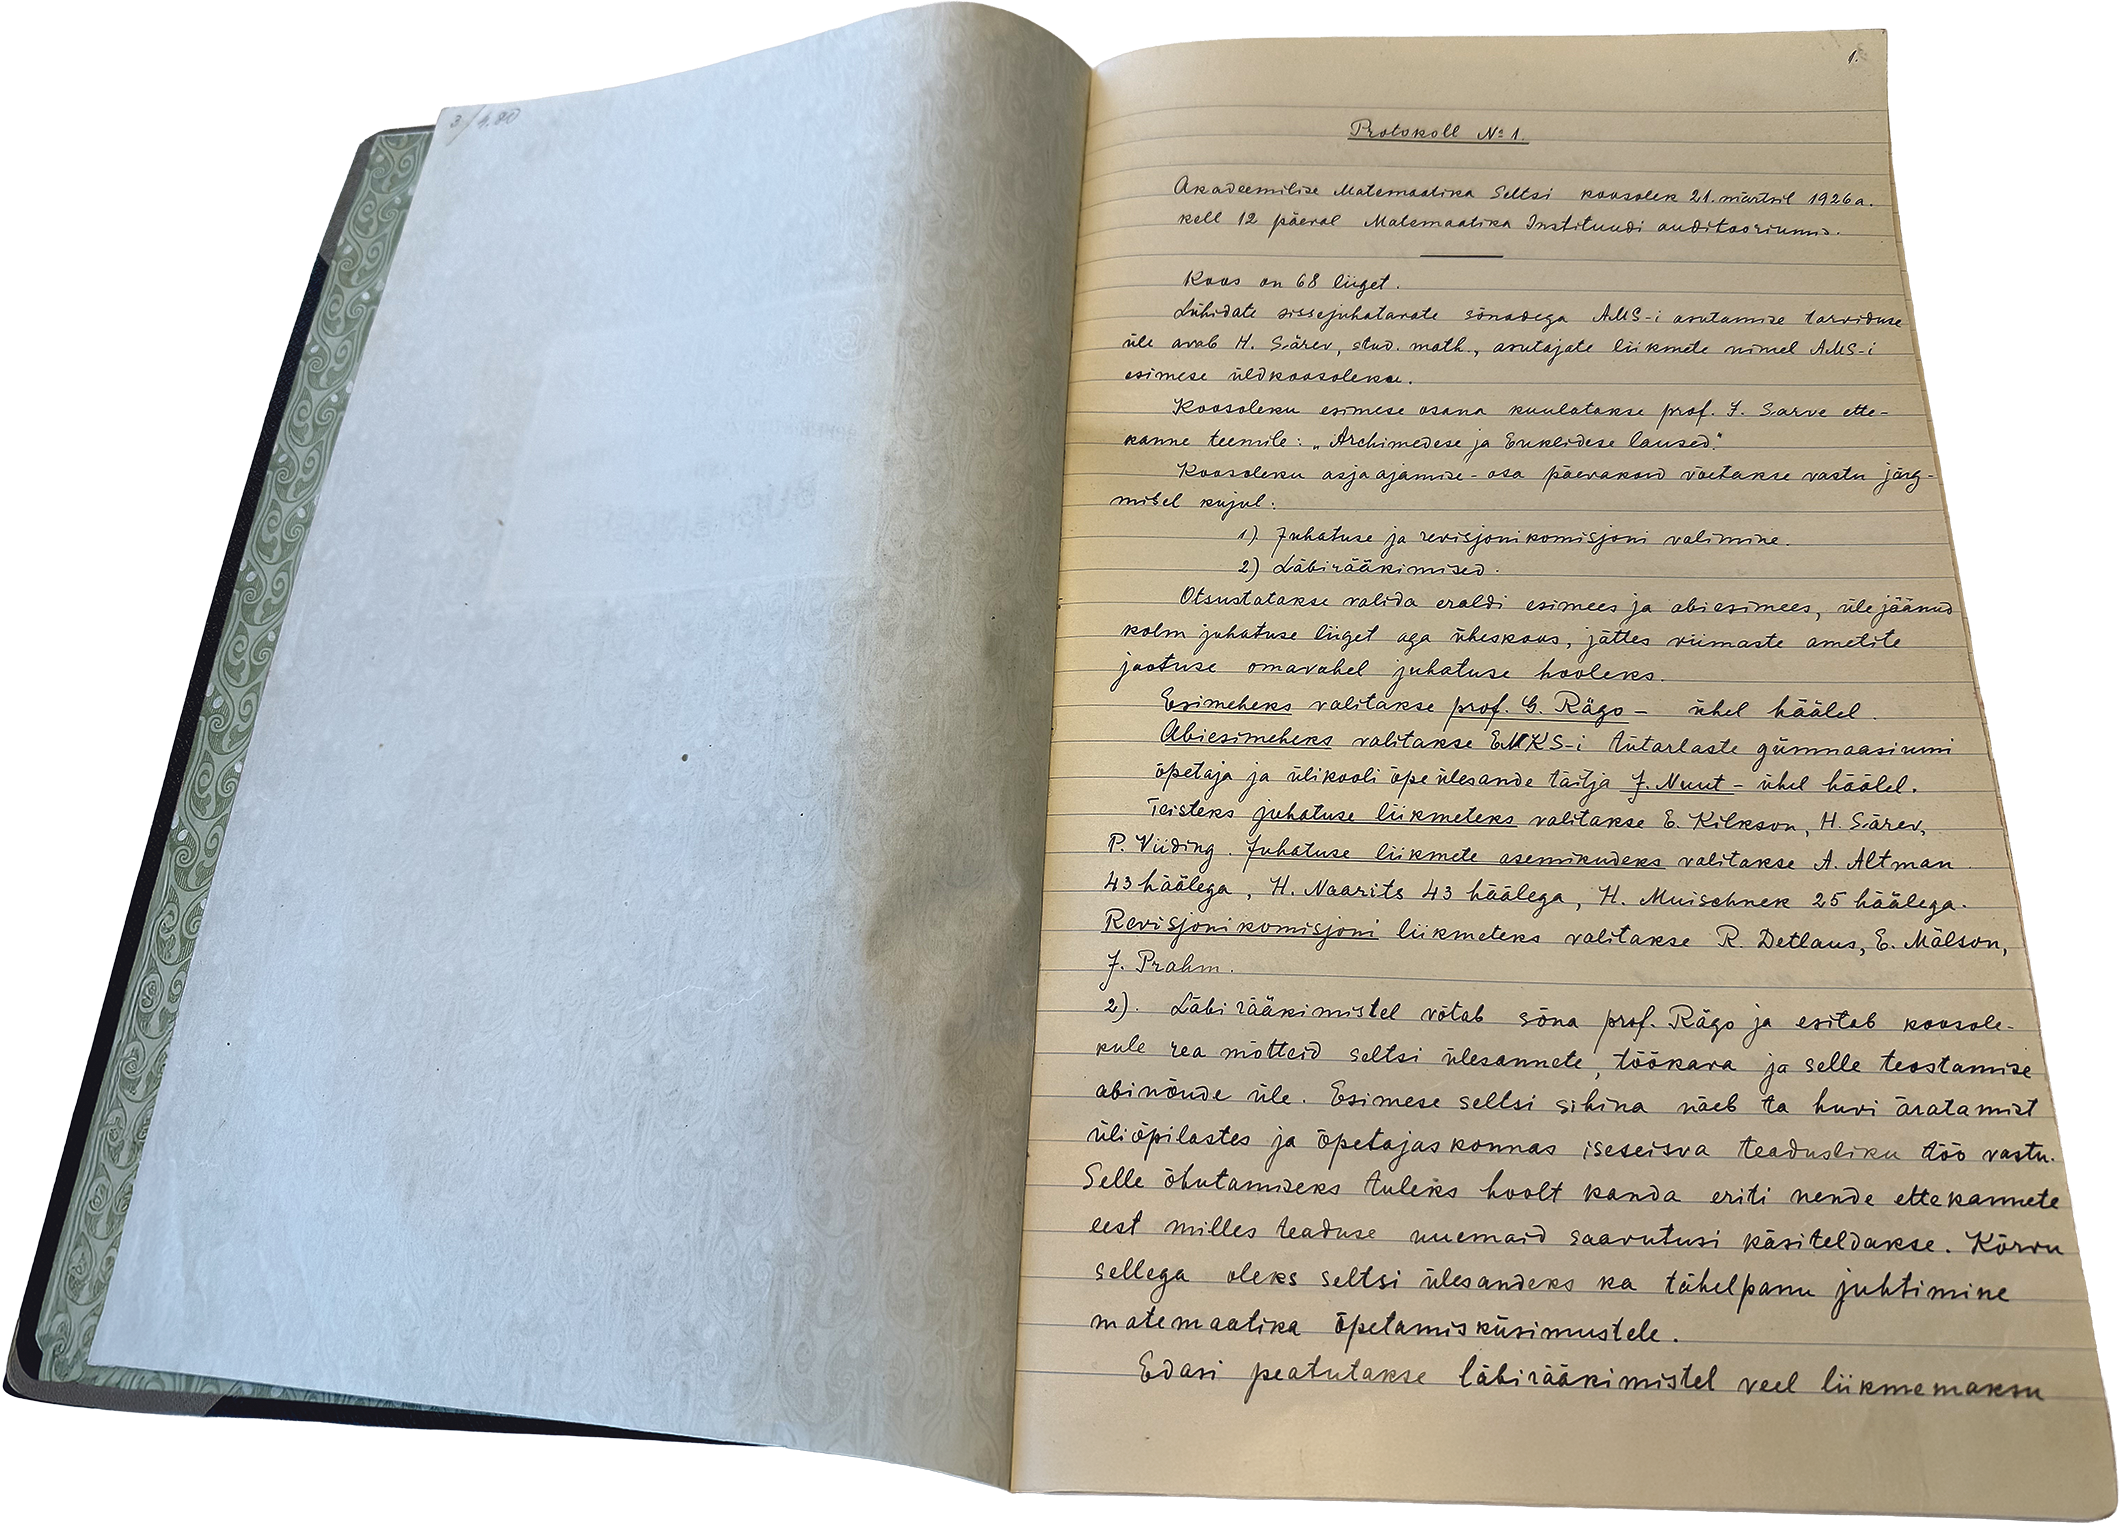 3/4.80
1.
Protokoll № 1.
Akadeemilise Matemaatika Seltsi koosolek 21. märtsil 1926 a.
kell 12 päeval Matemaatika Instituudi auditooriumis.
Koos on 68 liiget.
Lühidate sissejuhatavate sõnadega AMS-i asutamise tarviduse
üle avab H. Särev, stud. math., asutajate liikmete nimel AMS-i
esimese üldkoosoleku.
Koosoleku esimese osana kuulatakse prof. J. Sarve ette-
kanne teemile: „Archimedese ja Euklidese laused."
Koosoleku asjaajamise-osa päevakord võetakse vastu järg-
misel kujul:
1) Juhatuse ja revisjonikomisjoni valimine.
2) Läbirääkimised.
Otsustatakse valida eraldi esimees ja abiesimees, ülejäänud
kolm juhatuse liiget aga üheskoos, jättes viimaste ametite
jaotuse omavahel juhatuse hooleks.
Esimeheks valitakse prof. G. Rägo – ühel häälel.
Abiesimeheks valitakse ENKS-i tütarlaste gümnaasiumi
õpetaja ja ülikooli õpeülesande täitja J. Nuut – ühel häälel.
Teisteks juhatuse liikmeteks valitakse E. Kilkson, H. Särev,
P. Viiding. Juhatuse liikmete asemikudeks valitakse A. Altman
43 häälega, H. Naarits 43 häälega, H. Muischnek 25 häälega.
Revisjonikomisjoni liikmeteks valitakse R. Detlaus, E. Mälson,
J. Prahm.
2). Läbirääkimistel võtab sõna prof. Rägo ja esitab koosole-
kule rea mõtteid seltsi ülesannete, töökava ja selle teostamise
abinõude üle. Esimese seltsi sihina näeb ta huvi äratamist
üliõpilastes ja õpetajaskonnas iseseisva teadusliku töö vastu.
Selle õhutamiseks tuleks hoolt kanda eriti nende ettekannete
eest milles teaduse uuemaid saavutusi käsiteldakse. Kõrvu
sellega oleks seltsi ülesandeks ka tähelpanu juhtimine
matemaatika õpetamisküsimustele.
Edasi peatutakse läbirääkimistel veel liikmemaksu